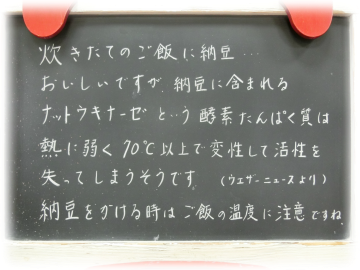 炊きたてのご飯に納豆…
おいしいですが、納豆に含まれる
ナットウキナーゼという酵素たんぱく質は
熱に弱く70℃以上で変性して活性を
失ってしまうそうです。（ウェザーニュースより）
納豆をかける時はご飯の温度に注意ですね